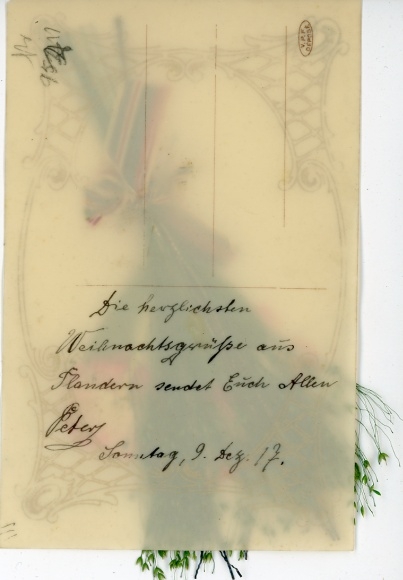 Die herzlichsten
Weihnachtsgrüße aus
Flandern sendet Euch Allen
Peter
Sonntag, 9. Dez. 17.